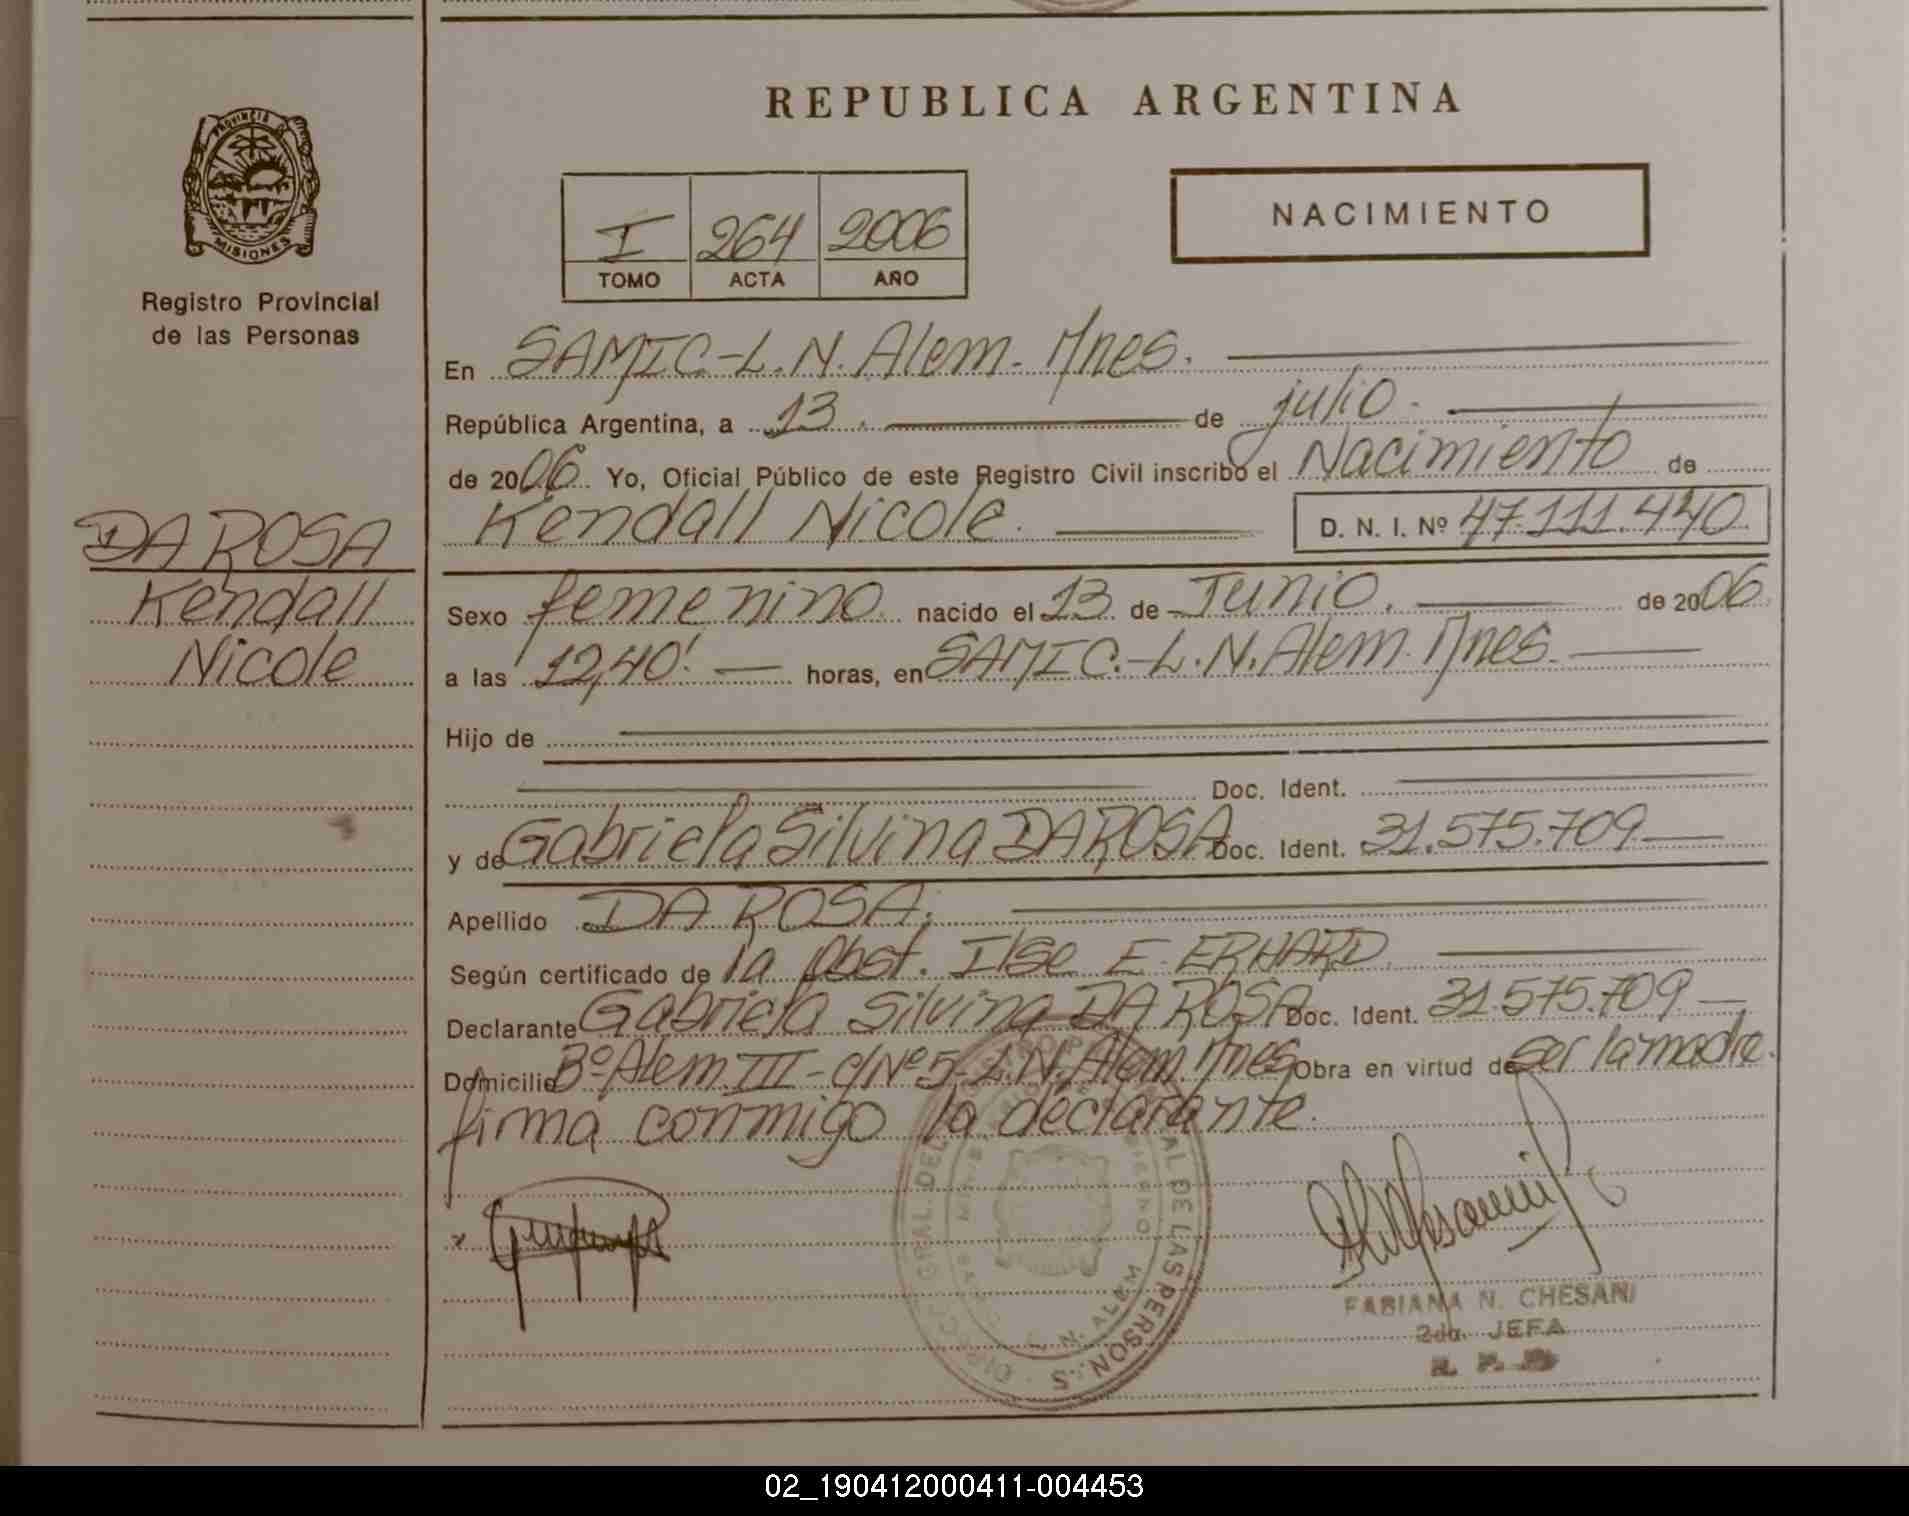 REPUBLICA ARGENTINA
PROVINCIA D
MISIONES
Registro Provincial
de las Personas
I 264 2006
TOMO ACTA AÑO
NACIMIENTO
En SAMIC.-L.N.Alem. Mnes.
República Argentina, a 13. de julio.
de 2006. Yo, Oficial Público de este Registro Civil inscribo el Nacimiento de
Kendall Nicole. D. N. I. Nº 47.111.440
DA ROSA
Kendall
Nicole
Sexo femenino. nacido el 13 de Junio. de 2006.
a las 12,40'. horas, en SAMIC.-L.N.Alem. Mnes.
Hijo de
Doc. Ident.
y de Gabriela Silvina DA ROSA Doc. Ident. 31.575.709
Apellido DA ROSA.
Según certificado de la Obst. Ilse E. ERHARD.
Declarante Gabriela Silvina DA ROSA Doc. Ident. 31.575.709
Domicilio Bº Alem III-c/Nº5-L.N.Alem. Mnes Obra en virtud de ser la madre.
firma conmigo la declarante.
GRAL. DEL AL DE LAS PERSON S
L. N. ALEM
FABIANA N. CHESANI
2da. JEFA
02_190412000411-004453